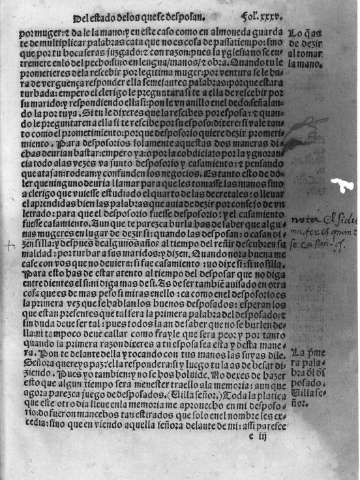 Del estado delos que se desposan. Fol. xxxv.
por muger: z da le la mano y en este caso como en almoneda guarda
te de multiplicar palabras cata que no es cosa de passatiempo: sino
que por tu boca seras juzgado: z con razon: pues la yglesia no se en
tremete en lo del pecho sino en lengua/manos/z obra. Quando tu le
prometieres dela rescebir por legitima muger: por ventura se le ha
ra de verguença responder ella semejantes palabras: porque estara
turbada: empero el clerigo le preguntara si te a ella de rescebir por
su marido: y respondiendo ella si: pon le vn anillo en el dedo señalan
do la por tuya. Si tu le dixeres que la rescibes por esposa: z quan
do le preguntaren a ella si te rescibe por su esposo: dixere si: vale tan
to como el prometimiento: porque desposorio quiere dezir prometi
miento. Para desposorios solamente aquestas dos maneras di
chas deurian bastar: empero ya o por la cobdicia o por la ygnoran
cia todo alas vezes va junto desposorio y casamiento: z pensando
que atajan rodean y confunden los negocios. Es tanto esto de do
ler que ninguno deuria llamar para que les tomasse las manos sino
a clerigo que vuiesse estudiado el quarto delas decretales: o lleuar
el aprendidas bien las palabras que auia de dezir por consejo de vn
letrado: para que el desposorio fuesse desposorio: y el casamiento
fuesse casamiento. Aun que te parezca burla has de saber que algu
nas mugeres en lugar de dezir si: quando las desposan: o casan di
zen silla: y despues de algunos años al tiempo del reñir descubren su
maldad: por turbar a sus maridos: y dizen. Quando nota buena me
case con vos que no deuiera: si fue casamiento: no dixe si: sino silla.
Para esto has de estar atento al tiempo del desposar que no diga
entre dientes el si: ni diga mas de si. As de ser tambie auisado en otra
cosa que es de mas peso si miras en ello: z ca como en el desposorio es
la primera vez que se hablan los buenos desposados: esperan los
que estan presentes que tal sera la primera palabra del desposado: z
sin duda deue ser tal: pues todos la an de saber que no se burlen de
lla: ni tampoco deue callar como frayle que sera peor: y por tanto
quando la primera razon dixeres a tu esposa sea esta y desta mane
ra. Pon te delante della y tocando con tus manos las suyas dile.
Señora quereys paz: ella respondera si: y luego tu la as de besar di
ziendo. Pues yo tambien: y no se hos holuide. No dexes de hazer
esto que algun tiempo sera menester traello ala memoria: aun que
agora parezca juego de desposados. (Uilla señor.) Toda la platica
que este otro dia lleue en la memoria me aprouecho en mi desposo
rio: do fueron mancebos tan estirados que solo en el nombre les ex
cedia: sino que en viendo aquella señora delante de mi: assi paresce
e iij
Lo q̃ as
de dezir
al tomar
la mano.
nota
La prime
ra pala
bra d̃l d̃s
posado.
Uilla se
ñor.